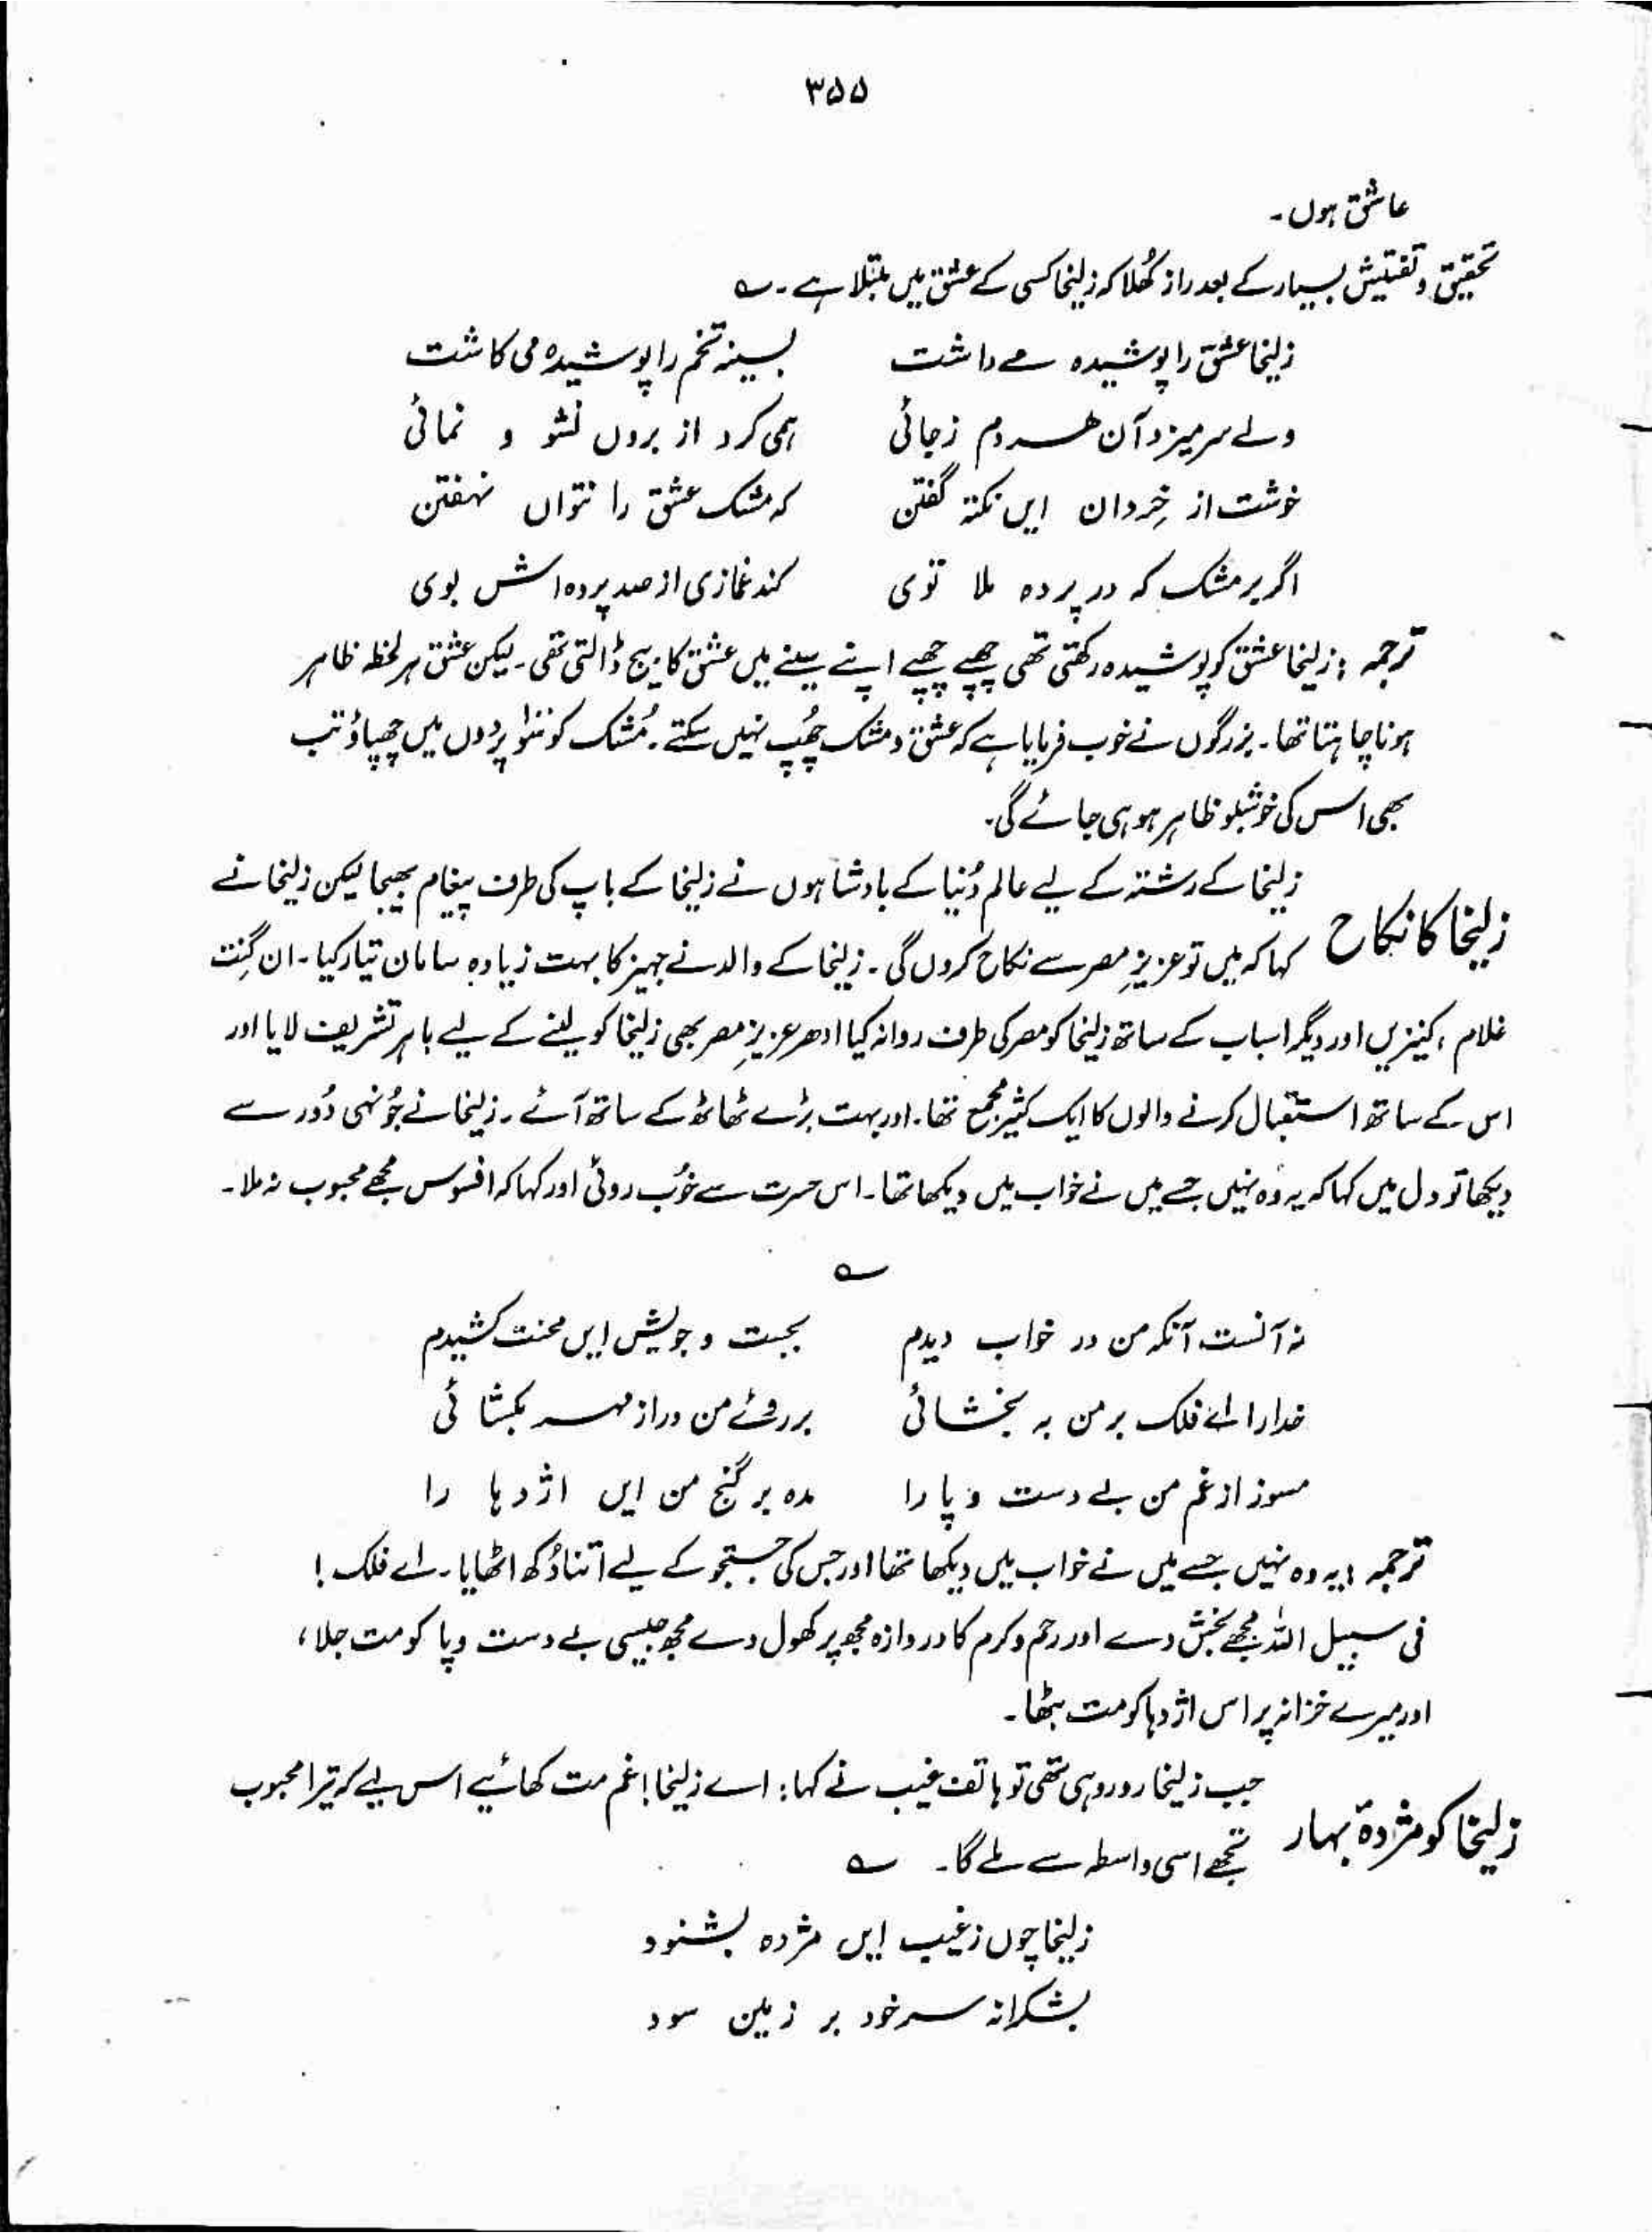 ۳۵۵
عاشق ہوں۔
تحقیق و تفتیش بسیار کے بعد راز کُھلا کہ زلیخا کسی کے عشق میں مبتلا ہے۔ ؎
زلیخا عشق را پوشیدہ مے داشت بسینہ تخم را پوشیدہ می کاشت
ولے سر میزد آن ھردم زجائی ہمی کرد از بروں نشو و نمائی
خوشت از خِردان ایں نکتہ گفتن کہ مشک عشق را نتواں نہفتن
اگر بر مشک کہ در پردہ ملا توی کند غمازی از صد پردہ اش بوی
ترجمہ : زلیخا عشق کو پوشیدہ رکھتی تھی چھپے چھپے اپنے سینے میں عشق کا بیج ڈالتی تھی۔ لیکن عشق ہر لحظہ ظاہر
ہونا چاہتا تھا۔ بزرگوں نے خوب فرمایا ہے کہ عشق و مشک چُھپ نہیں سکتے۔ مُشک کو سَو پردوں میں چھپاؤ تب
بھی اس کی خوشبو ظاہر ہو ہی جائے گی۔
زلیخا کے رشتہ کے لیے عالم دُنیا کے بادشاہوں نے زلیخا کے باپ کی طرف پیغام بھیجا لیکن زلیخا نے
زلیخا کا نکاح
کہا کہ میں تو عزیزِ مصر سے نکاح کروں گی۔ زلیخا کے والد نے جہیز کا بہت زیادہ سامان تیار کیا۔ ان گِنت
غلام ، کنیزیں اور دیگر اسباب کے ساتھ زلیخا کو مصر کی طرف روانہ کیا ادھر عزیزِ مصر بھی زلیخا کو لینے کے لیے باہر تشریف لایا اور
اس کے ساتھ استقبال کرنے والوں کا ایک کثیر مجمع تھا۔ اور بہت بڑے ٹھاٹھ کے ساتھ آئے۔ زلیخا نے جُونہی دُور سے
دیکھا تو دل میں کہا کہ یہ وُہ نہیں جسے میں نے خواب میں دیکھا تھا۔ اس حسرت سے خُوب روئی اور کہا کہ افسوس مجھے محبوب نہ ملا۔
؎
نہ آنست آنکہ من در خواب دیدم بجست و جویش ایں محنت کشیدم
خدارا اے فلک بر من بہ بخشائی برروئے من دراز مہر بکشائی
مسوز از غم من بے دست و پا را مدہ بر گنج من ایں اژدہا را
ترجمہ : یہ وہ نہیں جسے میں نے خواب میں دیکھا تھا اور جس کی جستجو کے لیے اتنا دُکھ اٹھایا۔ اے فلک !
فی سبیل اللہ مجھے بخش دے اور رحم و کرم کا دروازہ مجھ پر کھول دے مجھ جیسی بے دست و پا کو مت جلا ،
اور میرے خزانہ پر اس اژدہا کو مت بٹھا۔
جب زلیخا رو رہی تھی تو ہاتف غیب نے کہا : اے زلیخا ! غم مت کھائیے اس لیے کہ تیرا محبوب
زلیخا کو مژدۂ بہار
تجھے اسی واسطہ سے ملے گا۔ ؎
زلیخا چوں ز غیب ایں مژدہ بشنود
بشکرانہ سر خود بر زمین سود